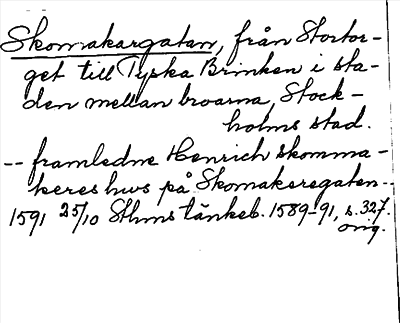 Skomakargatan, från Stortor-
get till Tyska Brinken i sta-
den mellan broarna, Stock-
holms stad.
-- framledne Henrich skomma-
keres hws på Skomakeregaten --
1591 25/10 Sthms tänkeb. 1589-91, s. 327.
orig.